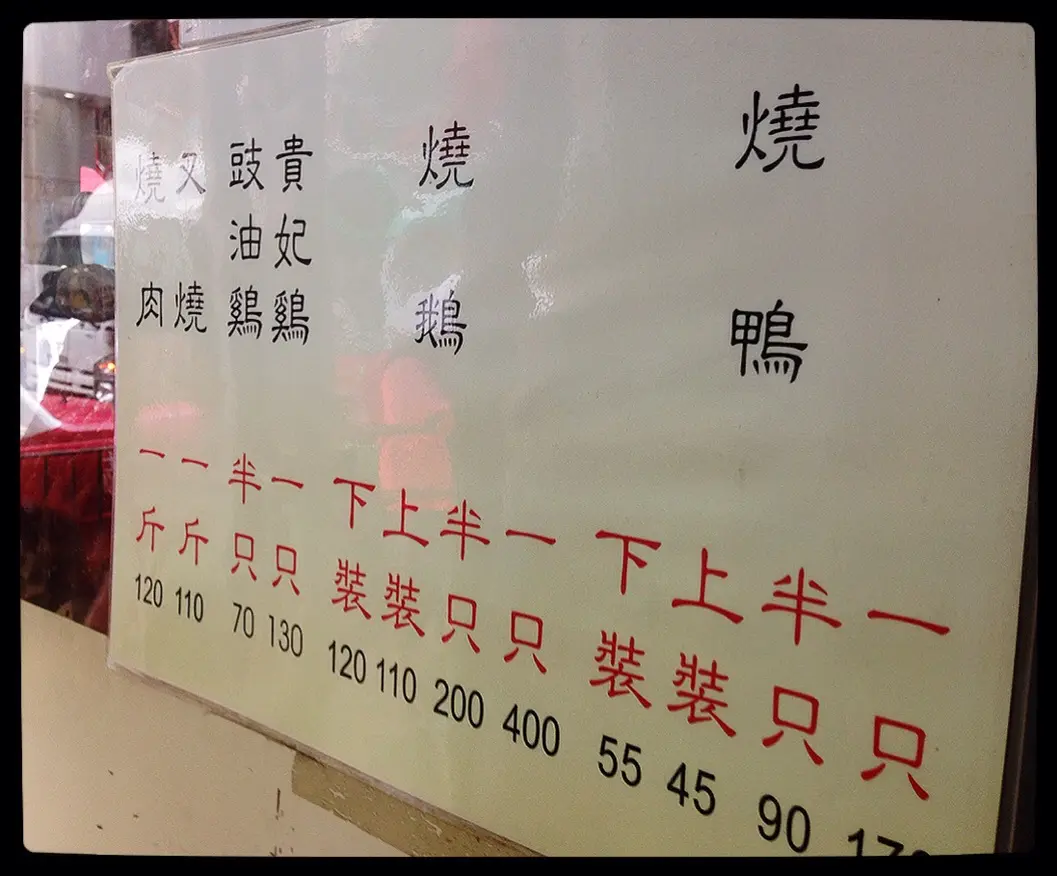 燒鴨
一只
半只 90
上裝 45
下裝 55
燒鵝
一只 400
半只 200
上裝 110
下裝 120
貴妃鷄
豉油鷄
一只 130
半只 70
叉燒
一斤 110
燒肉
一斤 120